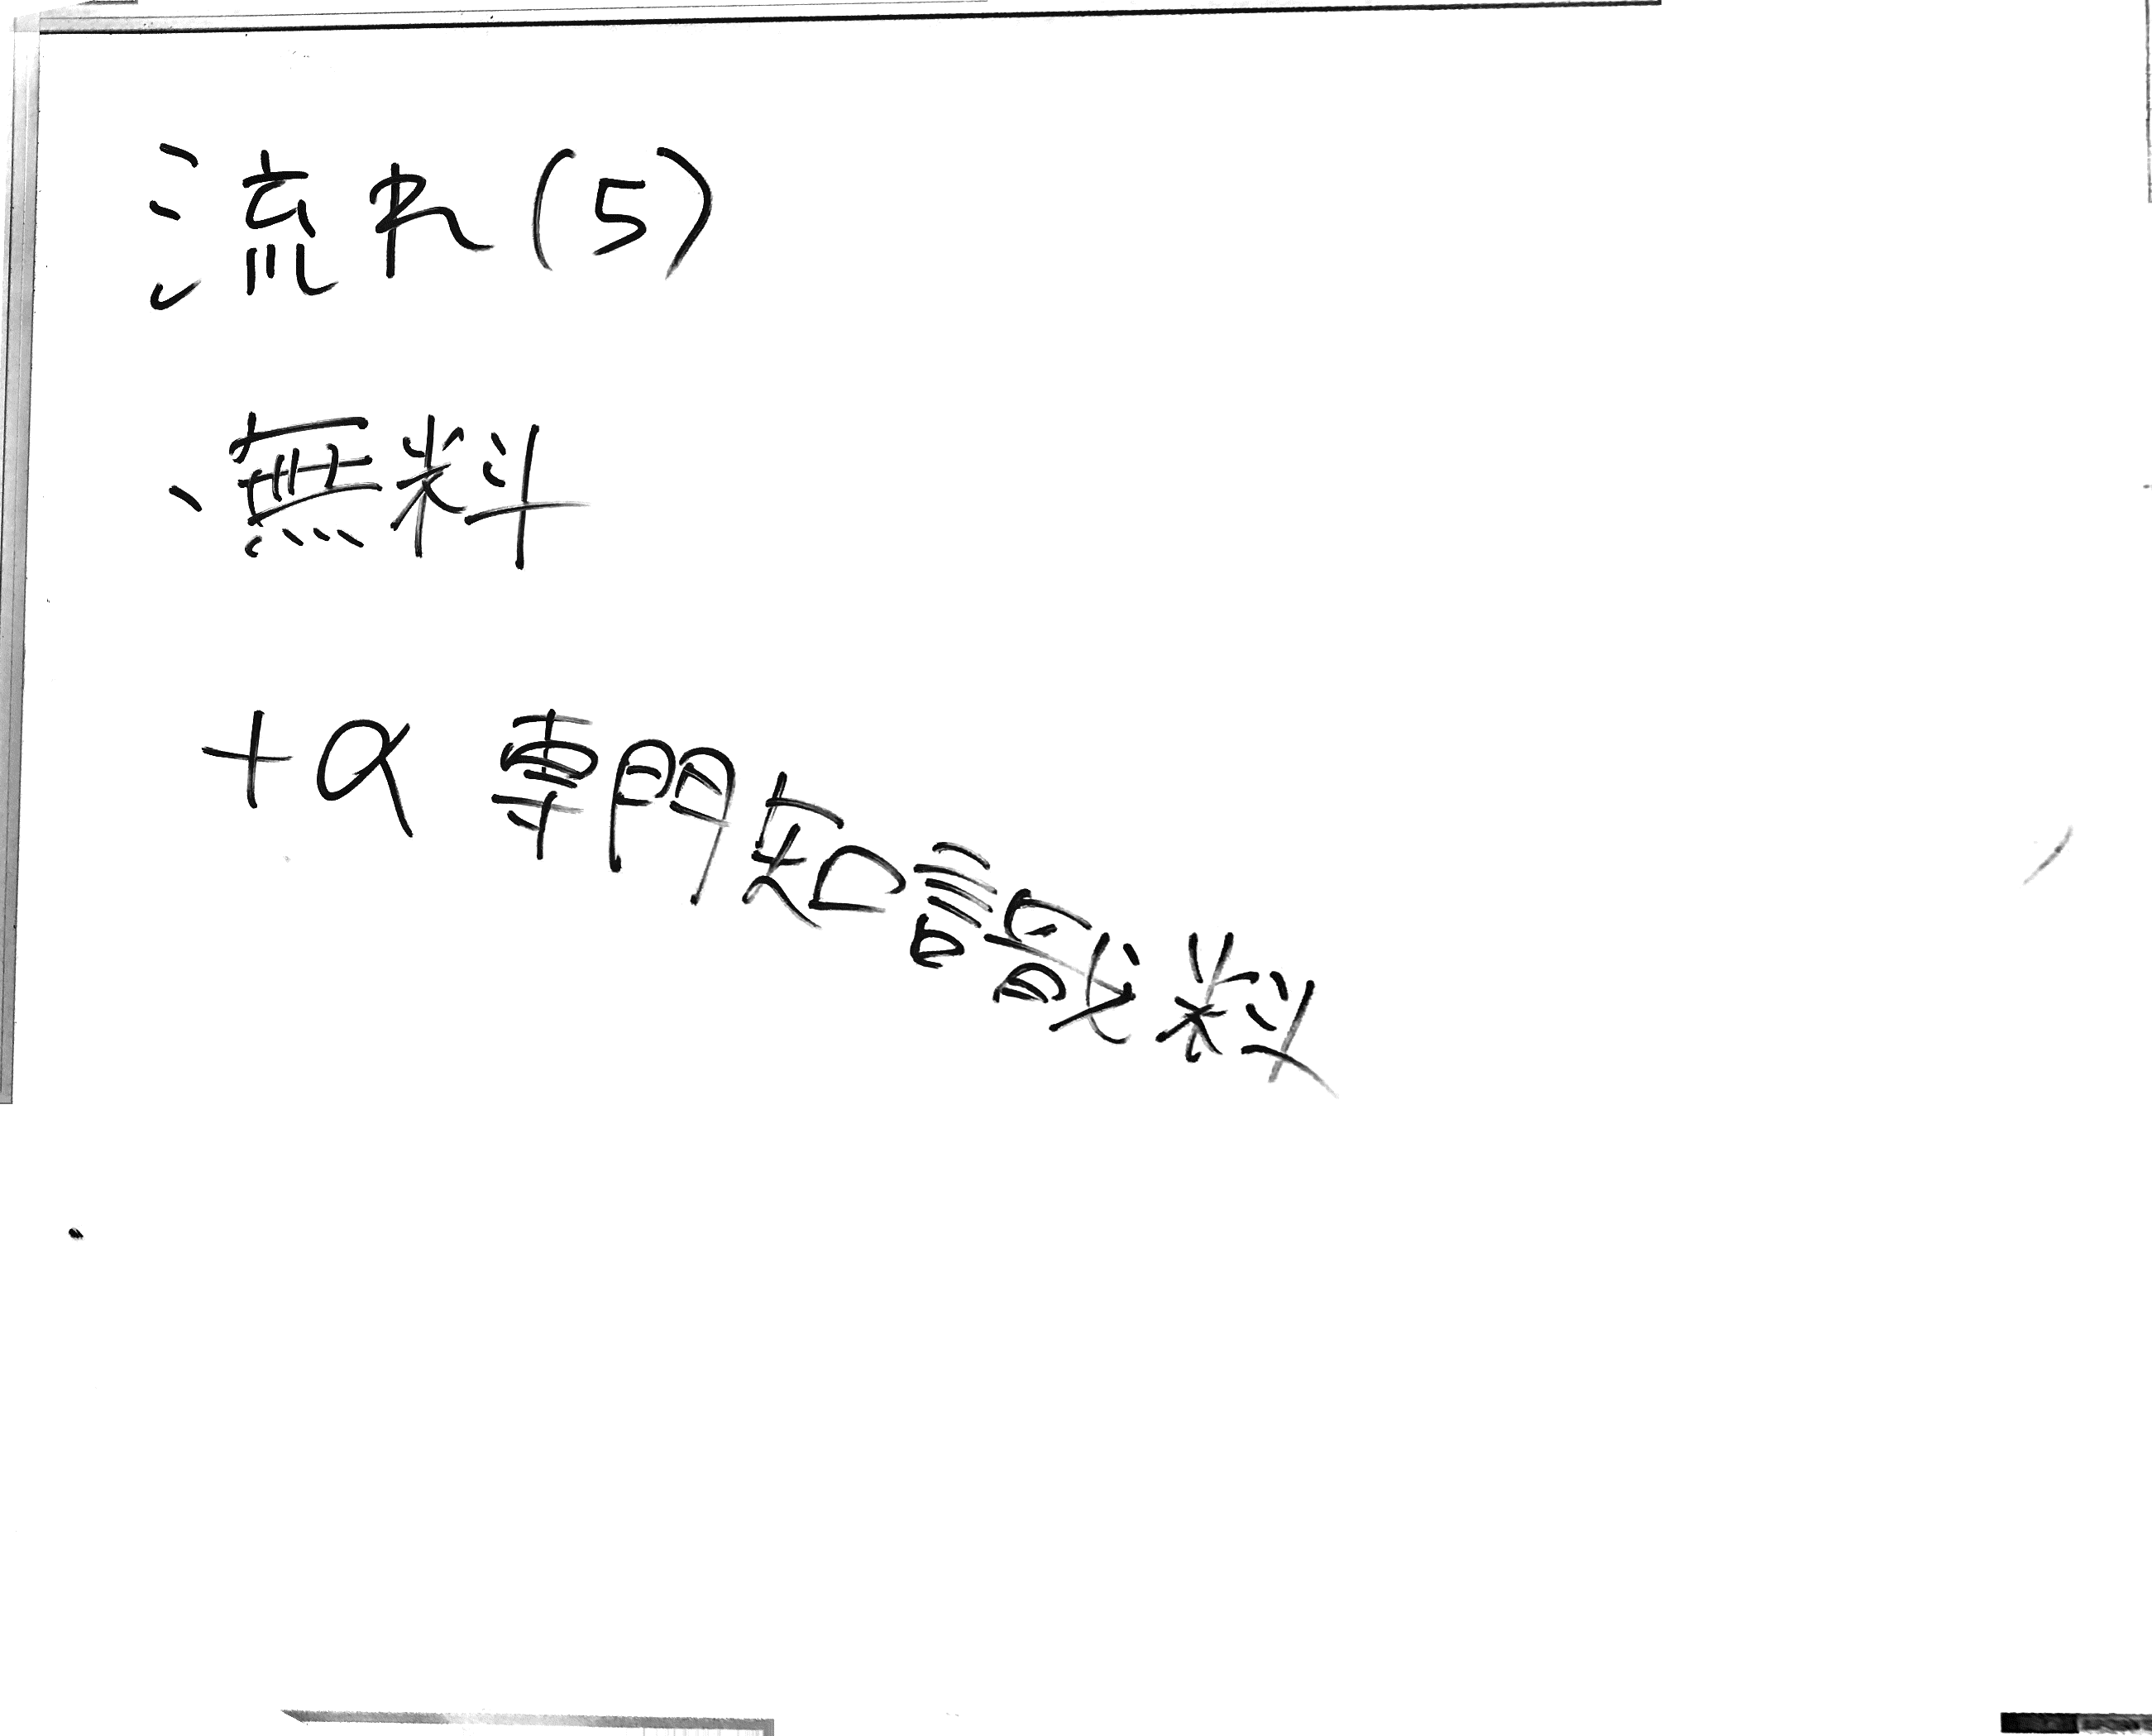 流れ(5)
、無料
+α 専門知識料